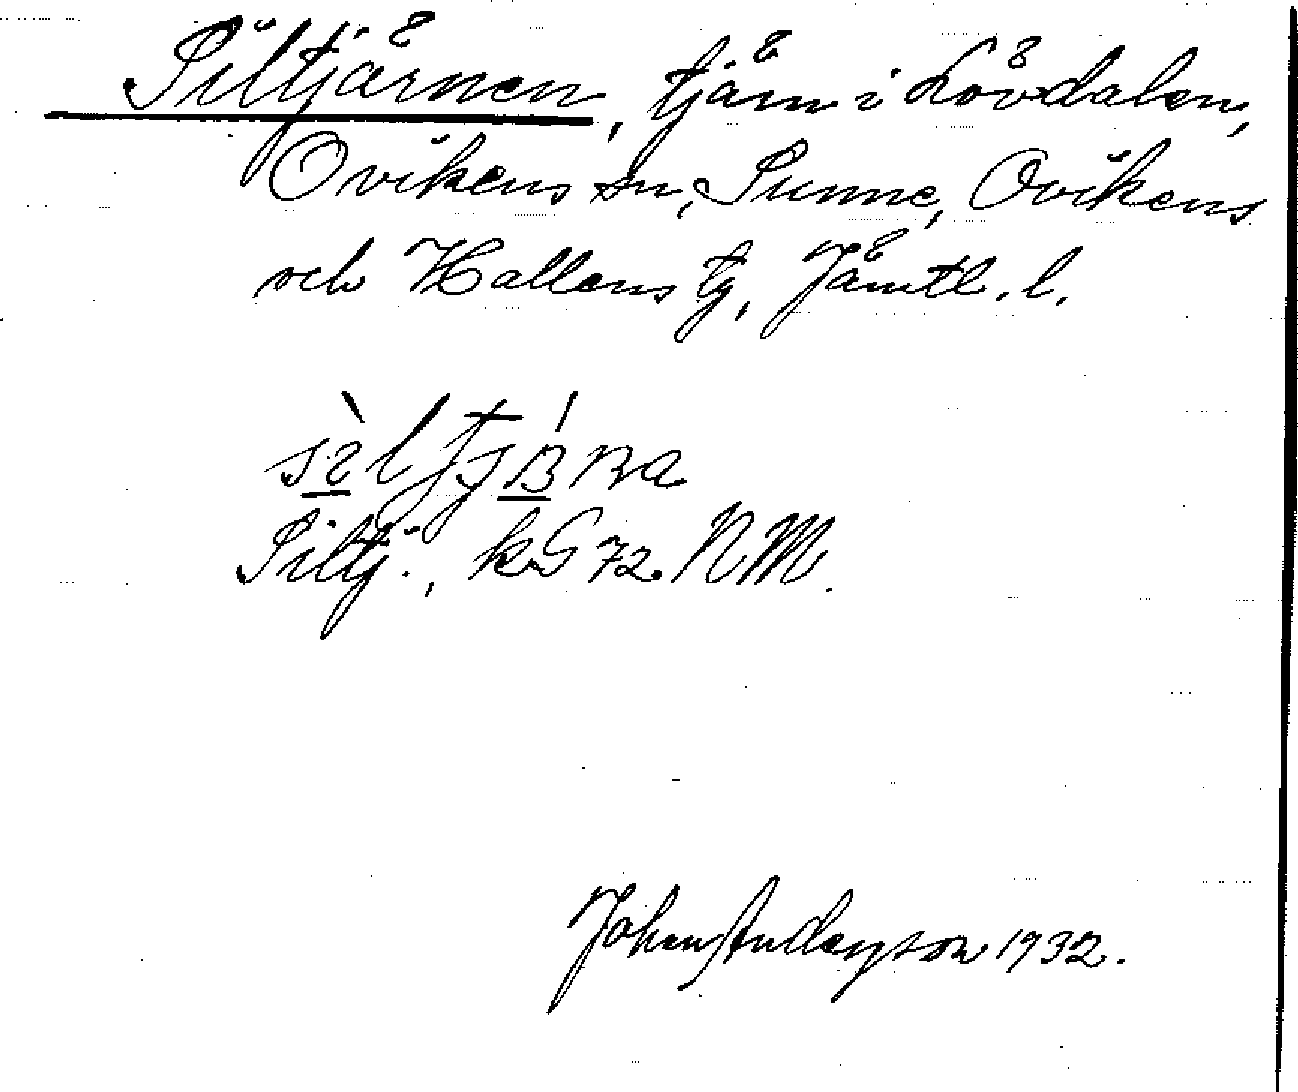 Siltjärnen, tjärn i Lövdalen,
Ovikens sn, Sunne, Ovikens
och Hallens tg, Jämtl. l.
Siltj., kG 72. NM.
Johan Anderson 1932.